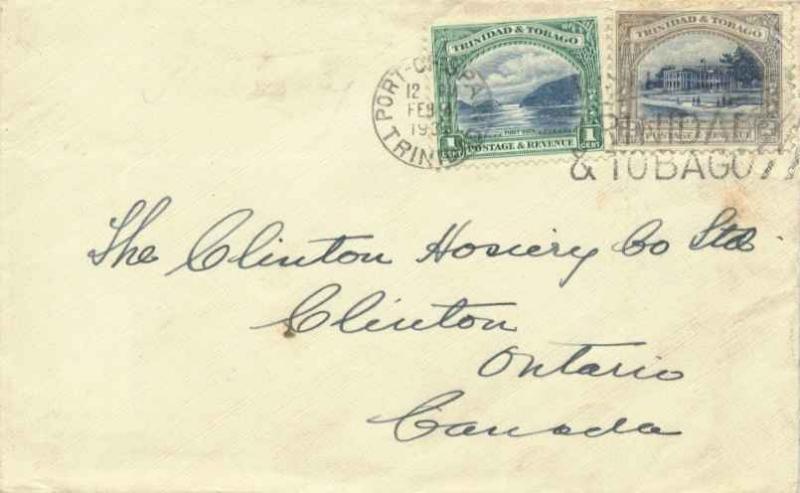 TRINIDAD & TOBAGO
TRINIDAD & TOBAGO
PORT-OF-SPA
12
FEB
193
TRINI
FIRST BOCA
1 CENT
1 CENT
POSTAGE & REVENUE
RINIDAD
& TOBAGO
The Clinton Hosiery Co Ltd.
Clinton
Ontario
Canada